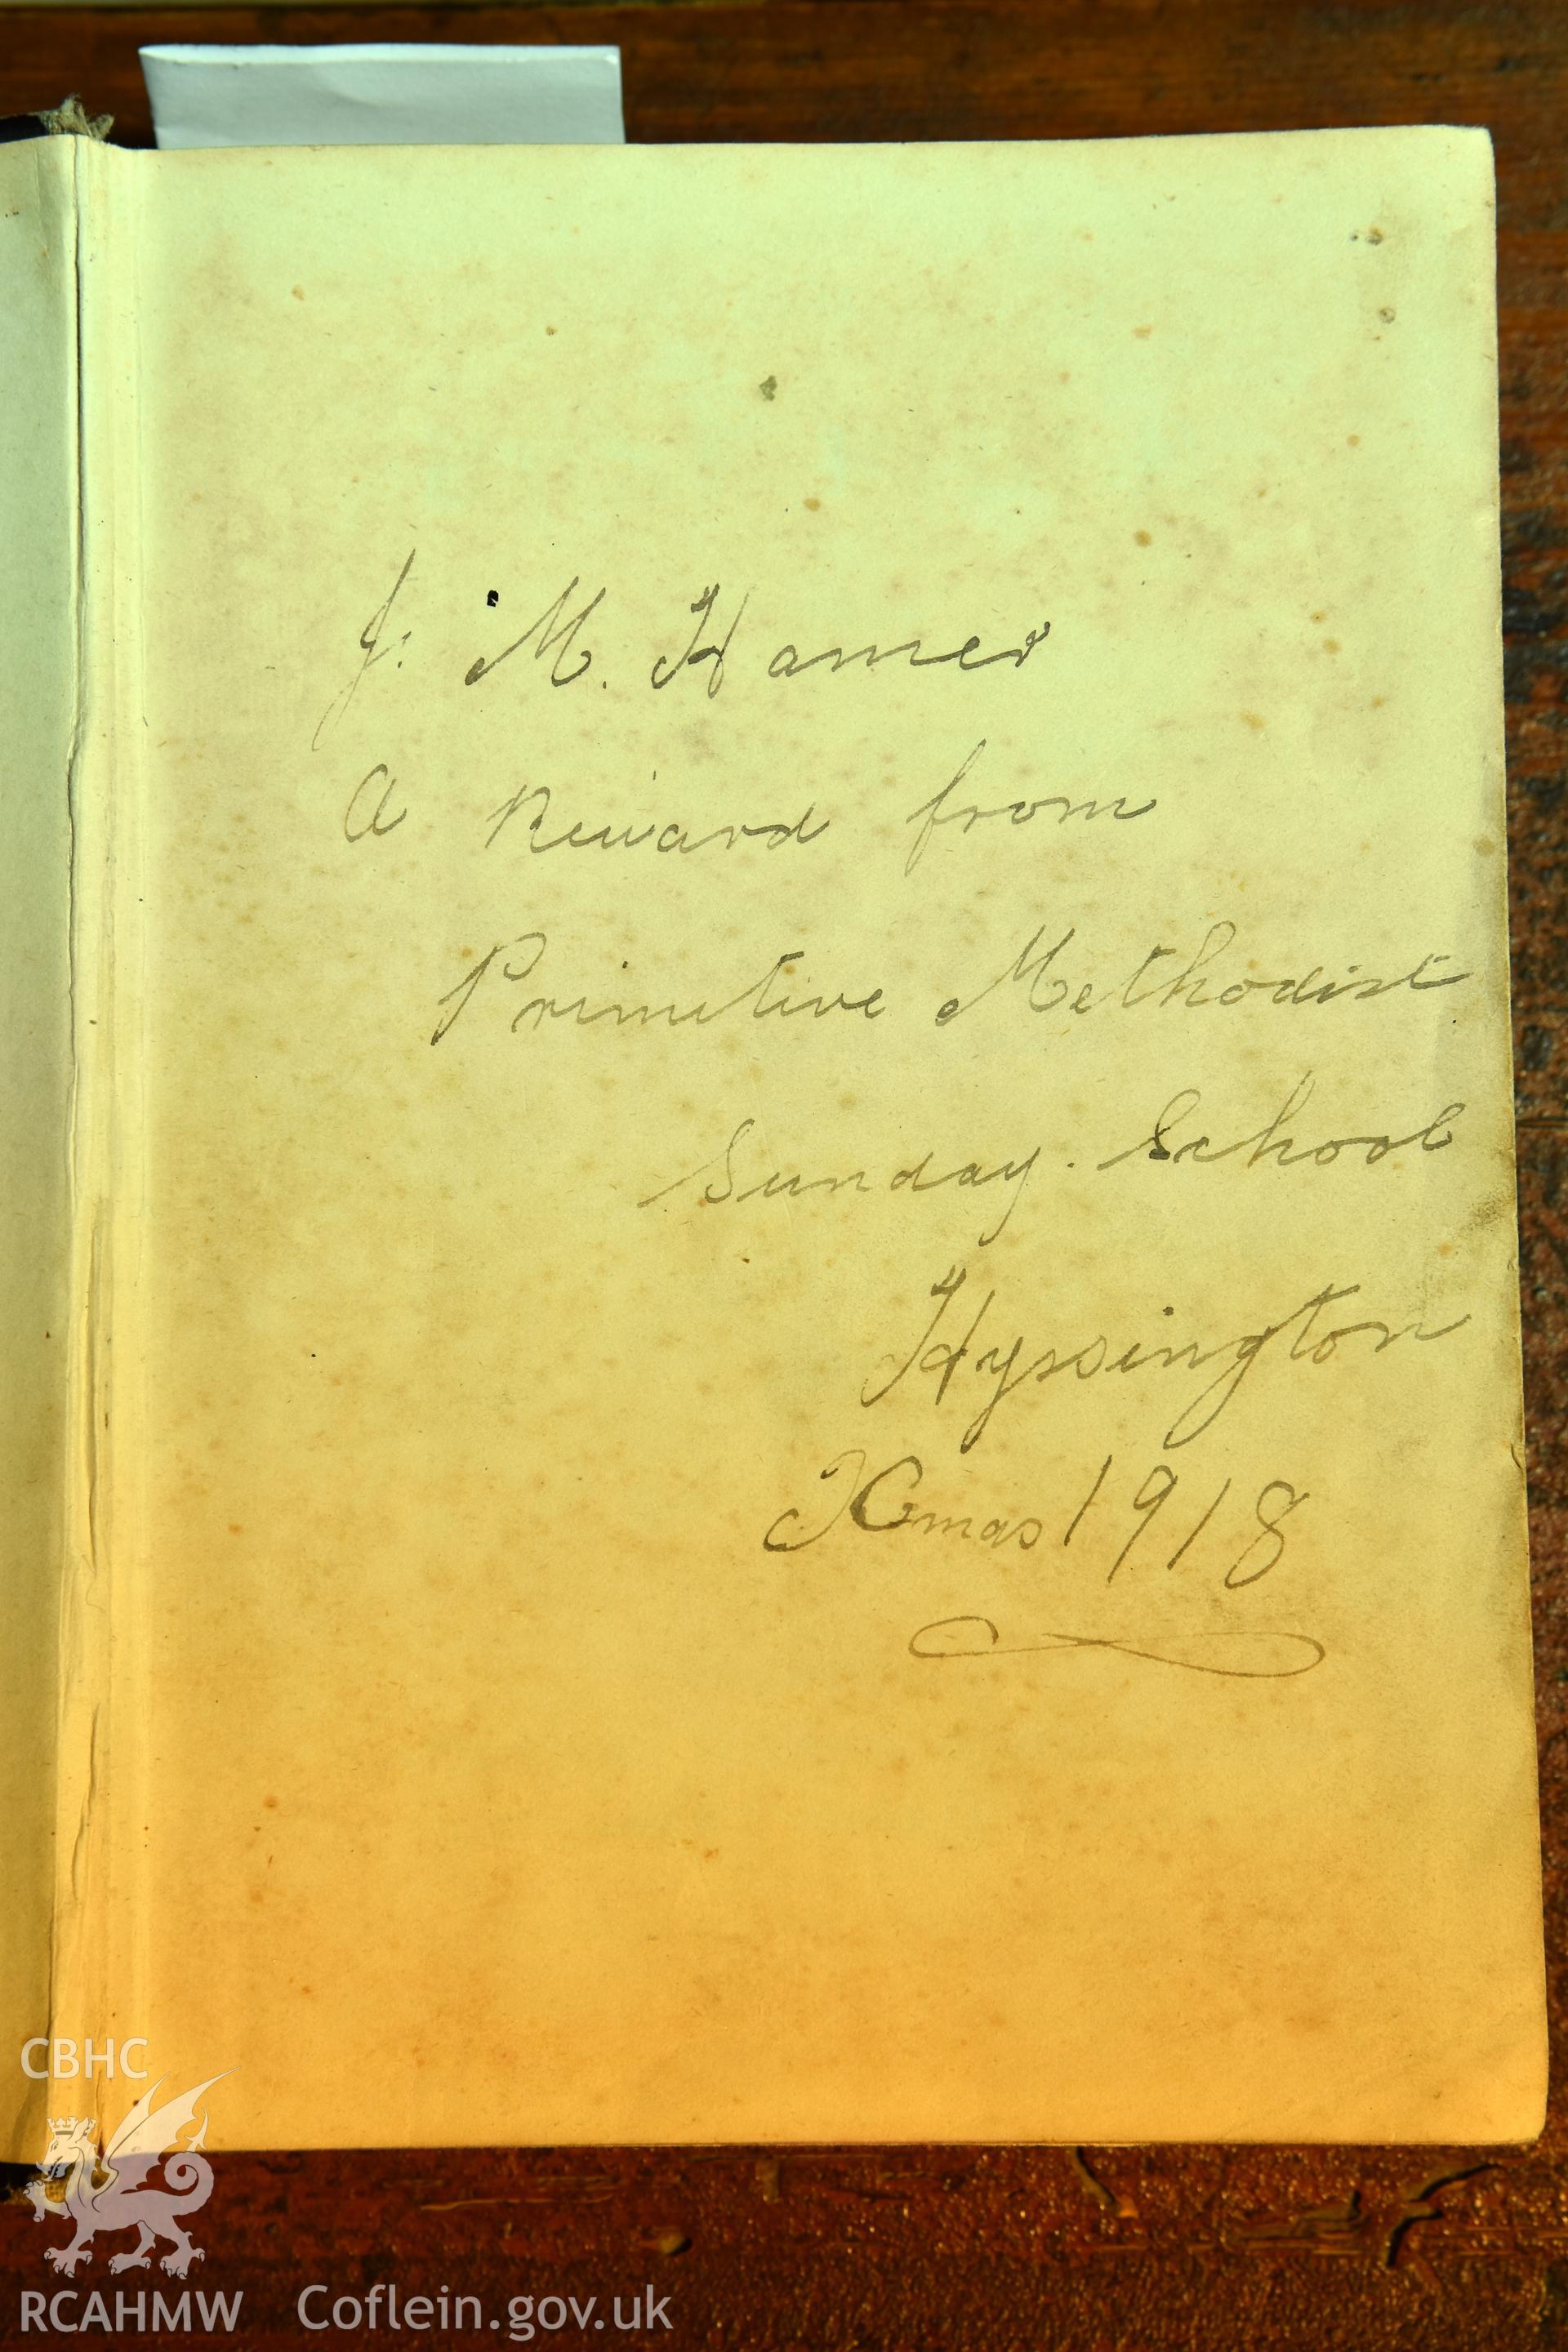 J. M. Hamer
A Reward from
Primitive Methodist
Sunday. School
Hyssington
Xmas 1918
CBHC
RCAHMW Coflein.gov.uk